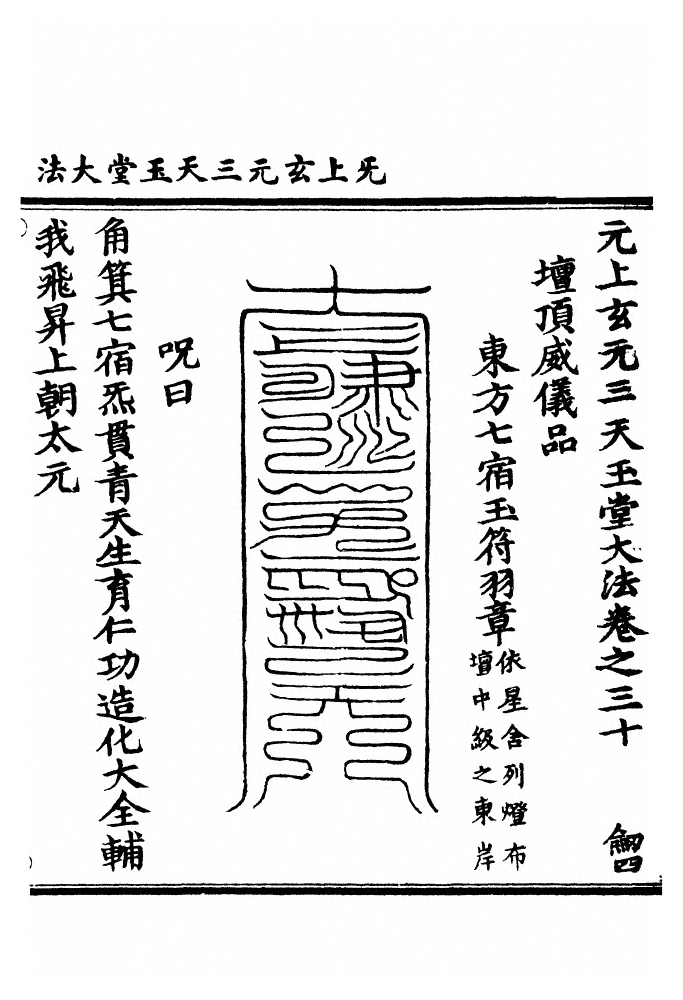 法大堂玉天三元玄上旡
元上玄元三天玉堂大法卷之三十 劒四
壇頂威儀品
東方七宿玉符羽章 依星舍列燈布
壇中級之東岸
呪曰
角箕七宿炁貫青天生育仁功造化大全輔
我飛昇上朝太元